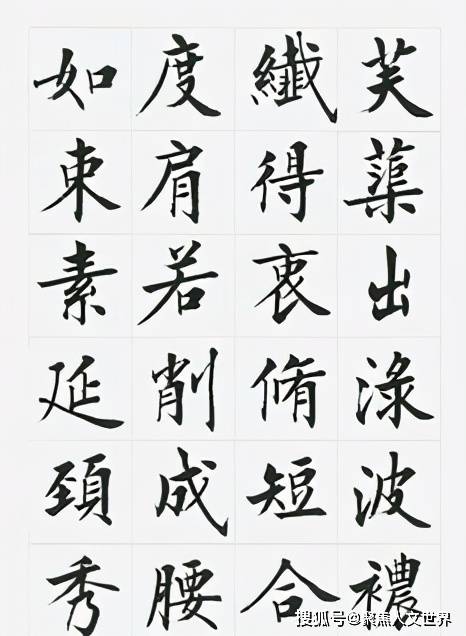 芙蕖出淥波襛
纖得衷脩短合
度肩若削成腰
如束素延頸秀
搜狐号@聚焦人文世界